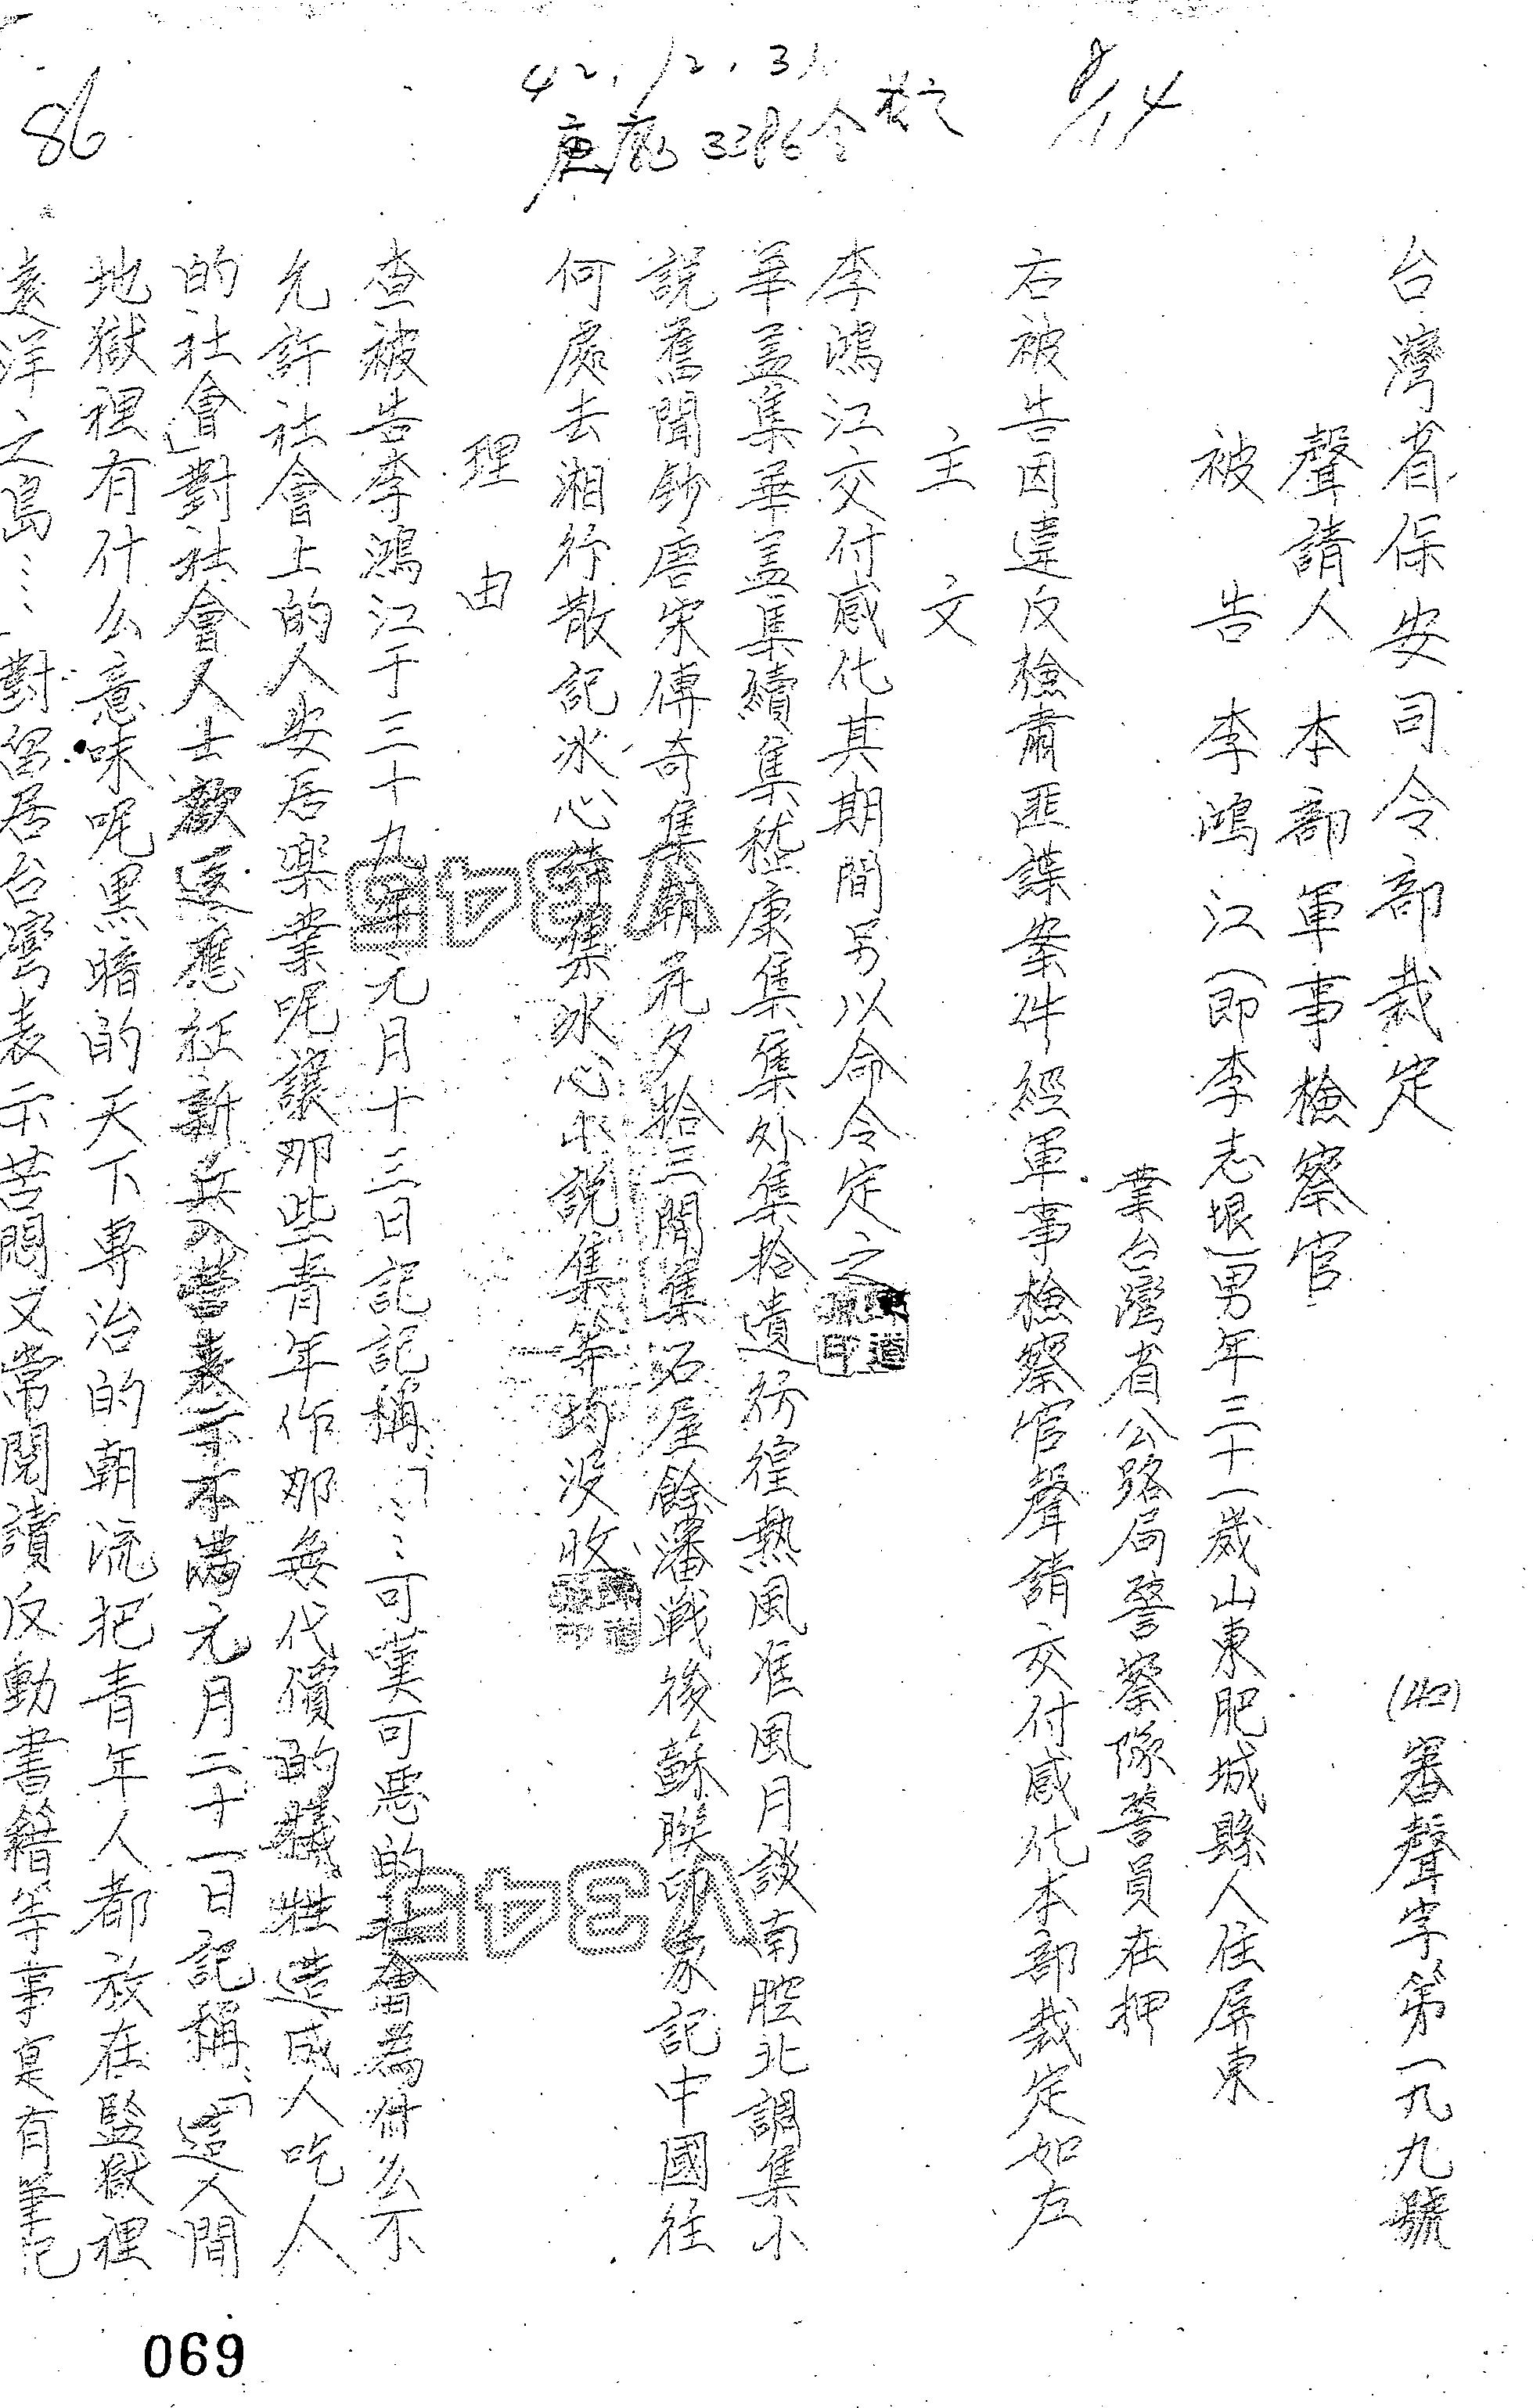 86
42.12.31
3286令
8/14
台灣省保安司令部裁定
(42)審聲字第一九九號
聲請人 本部軍事檢察官
被告 李鴻江(即李志垠)男年三十一歲山東肥城縣人住屏東
業台灣省公路局警察隊警員在押
右被告因違反檢肅匪諜案件經軍事檢察官聲請交付感化本部裁定如左
主文
李鴻江交付感化其期間另以命令定之
華盖集華盖集續集嵇康集集外集拾遺徬徨熱風准風月談南腔北調集小
說舊聞鈔唐宋傳奇集朝花夕拾三閒集石屋餘瀋戰後蘇聯印象記中國往
何處去湘行散記冰心詩集冰心小說集等均沒收
理由
查被告李鴻江于三十九年元月十三日記記稱「……可嘆可惡的社會為什么不
允許社會上的人安居樂業呢讓那些青年作那無代價的犧牲造成人吃人
的社會」對社會人士歡送應征新兵入營表示不滿元月二十一日記稱「這人間
地獄裡有什么意味呢黑暗的天下專治的朝流把青年人都放在監獄裡
遠洋之島……對留居台灣表示苦悶又常閱讀反動書籍等事寔有筆記
V3445
V3445
069